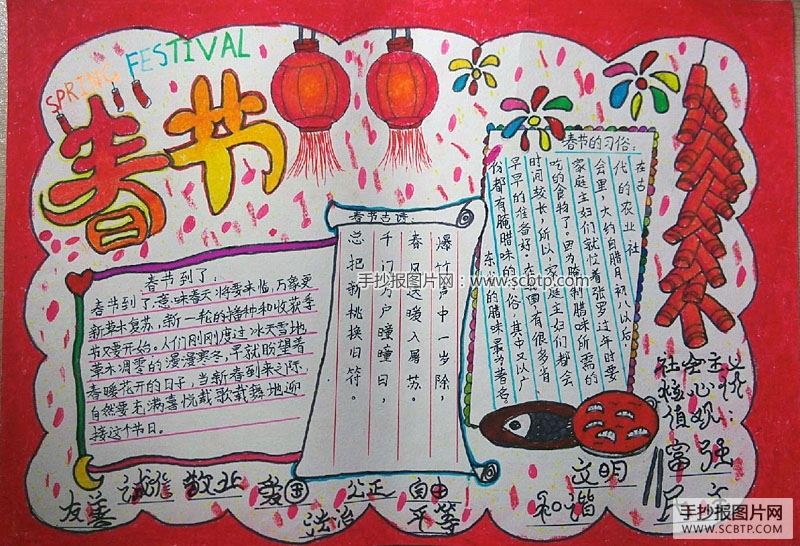 SPRING FESTIVAL
春节
春节古诗:
爆竹声中一岁除,
春风送暖入屠苏。
千门万户曈曈日,
总把新桃换旧符。
春节到了:
春节到了,意味春天将要来临,万象更
新草木复苏,新一轮的播种和收获季
节又要开始。人们刚刚度过冰天雪地
草木凋零的漫漫寒冬,早就盼望着
春暖花开的日子,当新春到来之际,
自然要充满喜悦载歌载舞地迎
接这个节日。
春节的习俗:
在古
代的农业社
会里,大约自腊月初八以后,
家庭主妇们就忙着张罗过年时要
吃的食物了。因为腌制腊味所需的
时间较长,所以,家庭主妇们都会
早早的准备好。在中国有很多省
份都有腌腊味的习俗,其中又以广
东省的腊味最为著名。
社会主义
核心价
值观:
富强
文明
和谐
自由
平等
公正
法治
爱国
敬业
诚信
友善
手抄报图片网:www.scbtp.com
手抄报图片网
WWW.SCBTP.COM